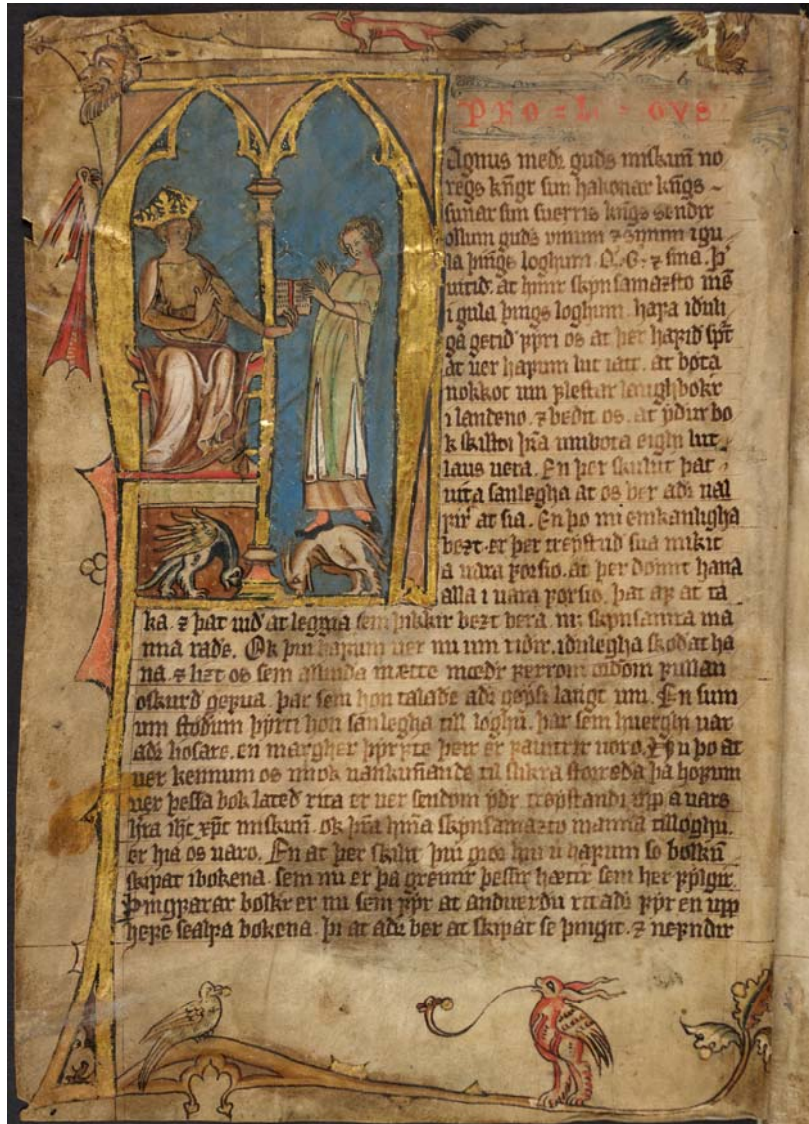 PRO = L = OGVS
Agnus med guds miskun no
regs kngr sun hakonar kngs
sunar sun suerris kngs sendir
ollum guds vinum ⁊ sinum i gu
la þings loghum. Q. G. ⁊ sina. Þ
uitid. at hinir skynsamazsto men
i gula þings loghum. hafa iðuli
ga getid fyri os at þer hafid spt
at uer hafum lut i att. at bota
nokkot um flestar laughbokr
i landeno. ⁊ bedit os. at ydur bo
k skilldi hra umbota eighi lut
laus uera. En þer skulut þat
uita sanlegha at os ber adr ual
fir at sia. En þo mi emkanligha
bezt er þer treystud sua mikit
a uara forsio. at þer domit hana
alla i uara forsio. þat af at ta
ka. ⁊ þat uid at leggia sem þikkir bezt bera. mz skynsamra ma
nna rade. Ok þui hafum uer nu um ridir. idulegha skodat ha
na. ⁊ lizt os sem allunda mætte medr færrom ordom fullan
oskurd gerua. þar sem hon talade adr gøysi langt um. En sum
um stodum þyrfti hon sanlegha till loghu. þar sem huerghi uar
adr liosare. en margher þyrfte þeir er fauitrir uoro. Nu þo at
uer kennum os miok uankunnande til slikra storreda þa hofum
uer þessa bok lated rita er uer sendom ydr. treystandi upp a uars
hra ihc xpc miskun. ok hra hinna skynsamazto manna tilloghu.
er hia os uaro. En at þer skilir þui gior huu u hafum so bolku
skipat i bokena. sem nu er þa greinir þessir hættir sem her fylgir.
Þingfarar bolkr er nu sem fyr at anduerdu ritadr fyr en upp
hefe sealfa bokena. þi at adr ber at skipat se þingit. ⁊ nefndir